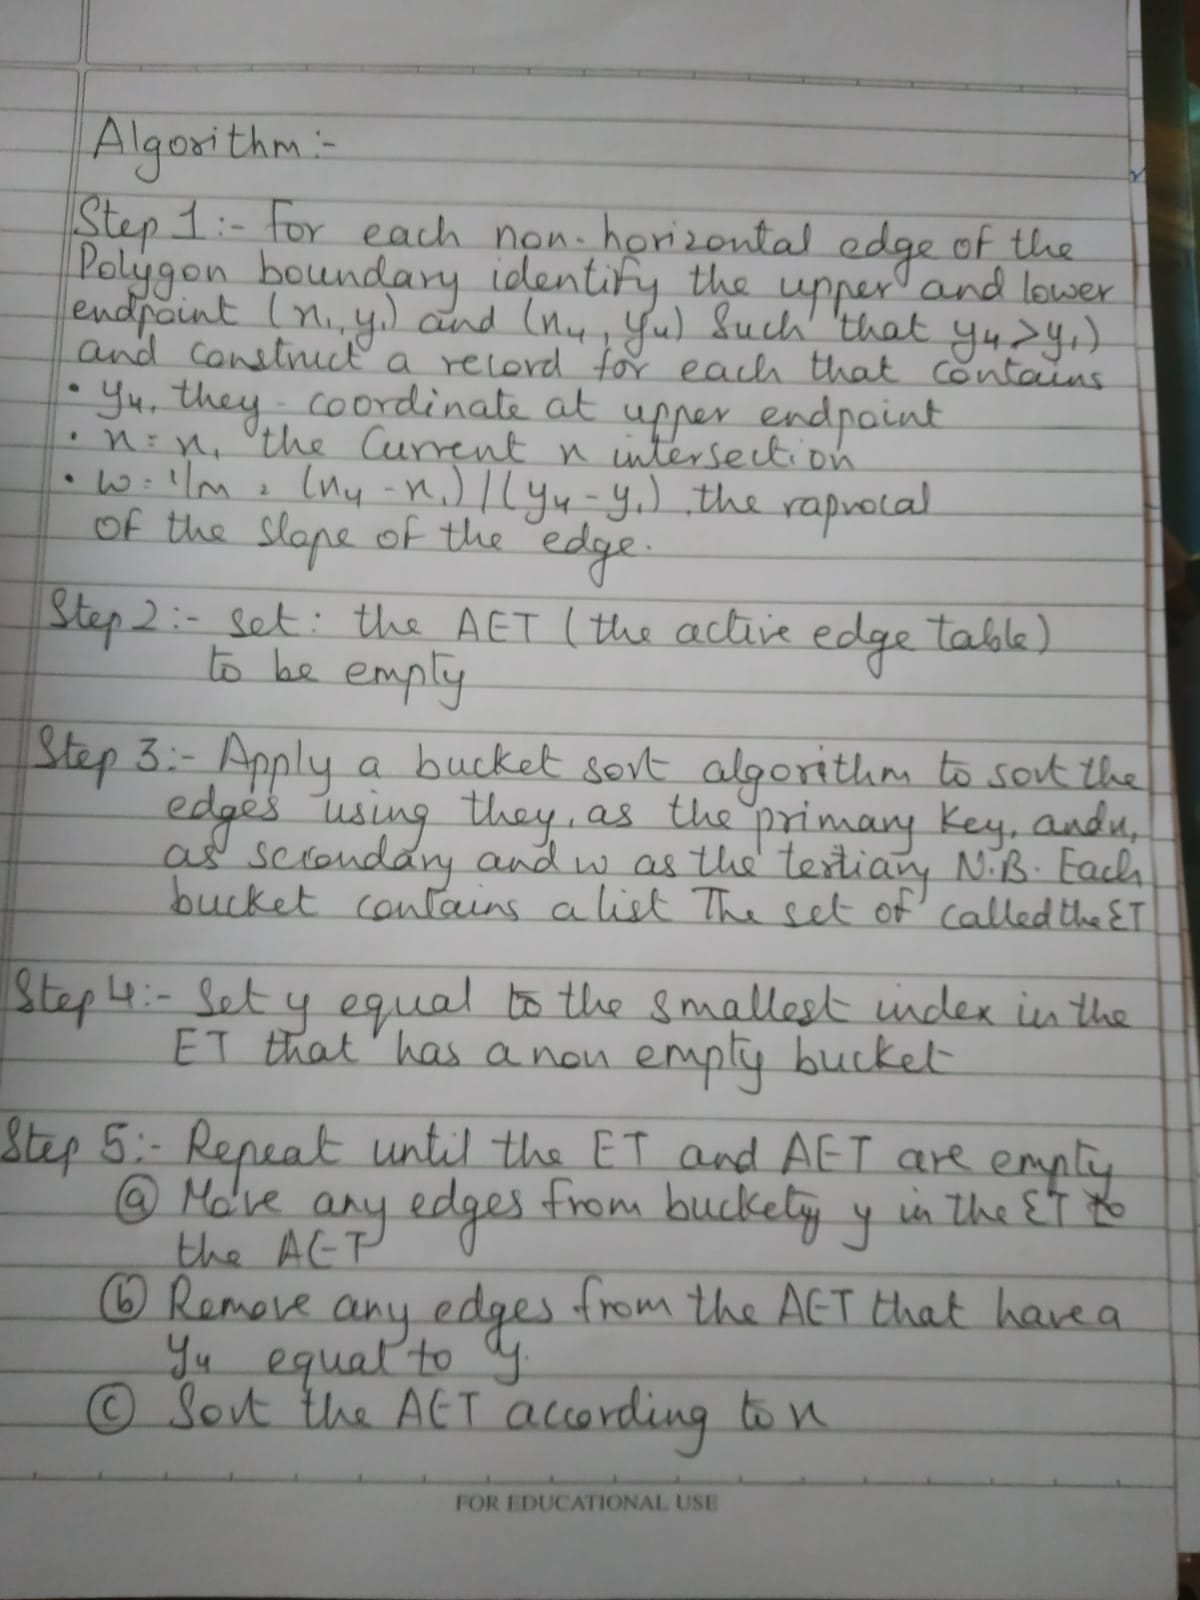 Algorithm :-
Step 1 :- For each non-horizontal edge of the
Polygon boundary identify the upper and lower
endpoint (n₁, y₁) and (n₄, y₄) Such that y₄>y₁)
and construct a record for each that contains
• y₄, they - coordinate at upper endpoint
• n = n₁ the Current n intersection
• w = 1/m = (n₄ - n₁) / (y₄ - y₁), the raprocal
of the slope of the edge.
Step 2 :- set : the AET (the active edge table)
to be empty
Step 3 :- Apply a bucket sort algorithm to sort the
edges using they, as the primary key, and n,
as secondary and w as the tertiary N.B. Each
bucket contains a list The set of called the ET
Step 4 :- Set y equal to the smallest index in the
ET that has a non empty bucket
Step 5 :- Repeat until the ET and AET are empty
(a) Move any edges from bucket y in the ET to
the AET
(b) Remove any edges from the AET that have a
y₄ equal to y.
(c) Sort the AET according to n
FOR EDUCATIONAL USE